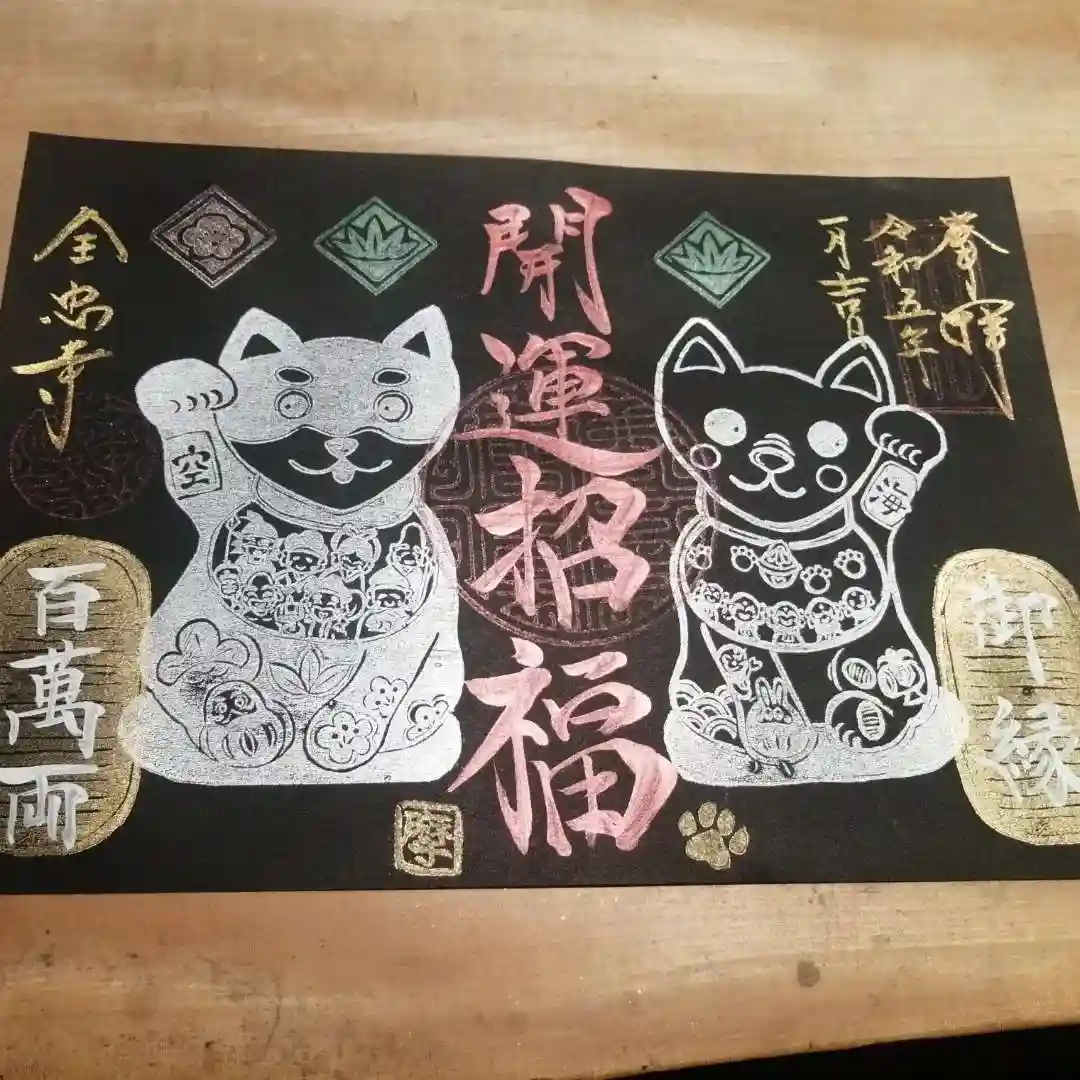 奉拝
令和五年
一月吉日
開運招福
全忠寺
空
海
御縁
百萬両